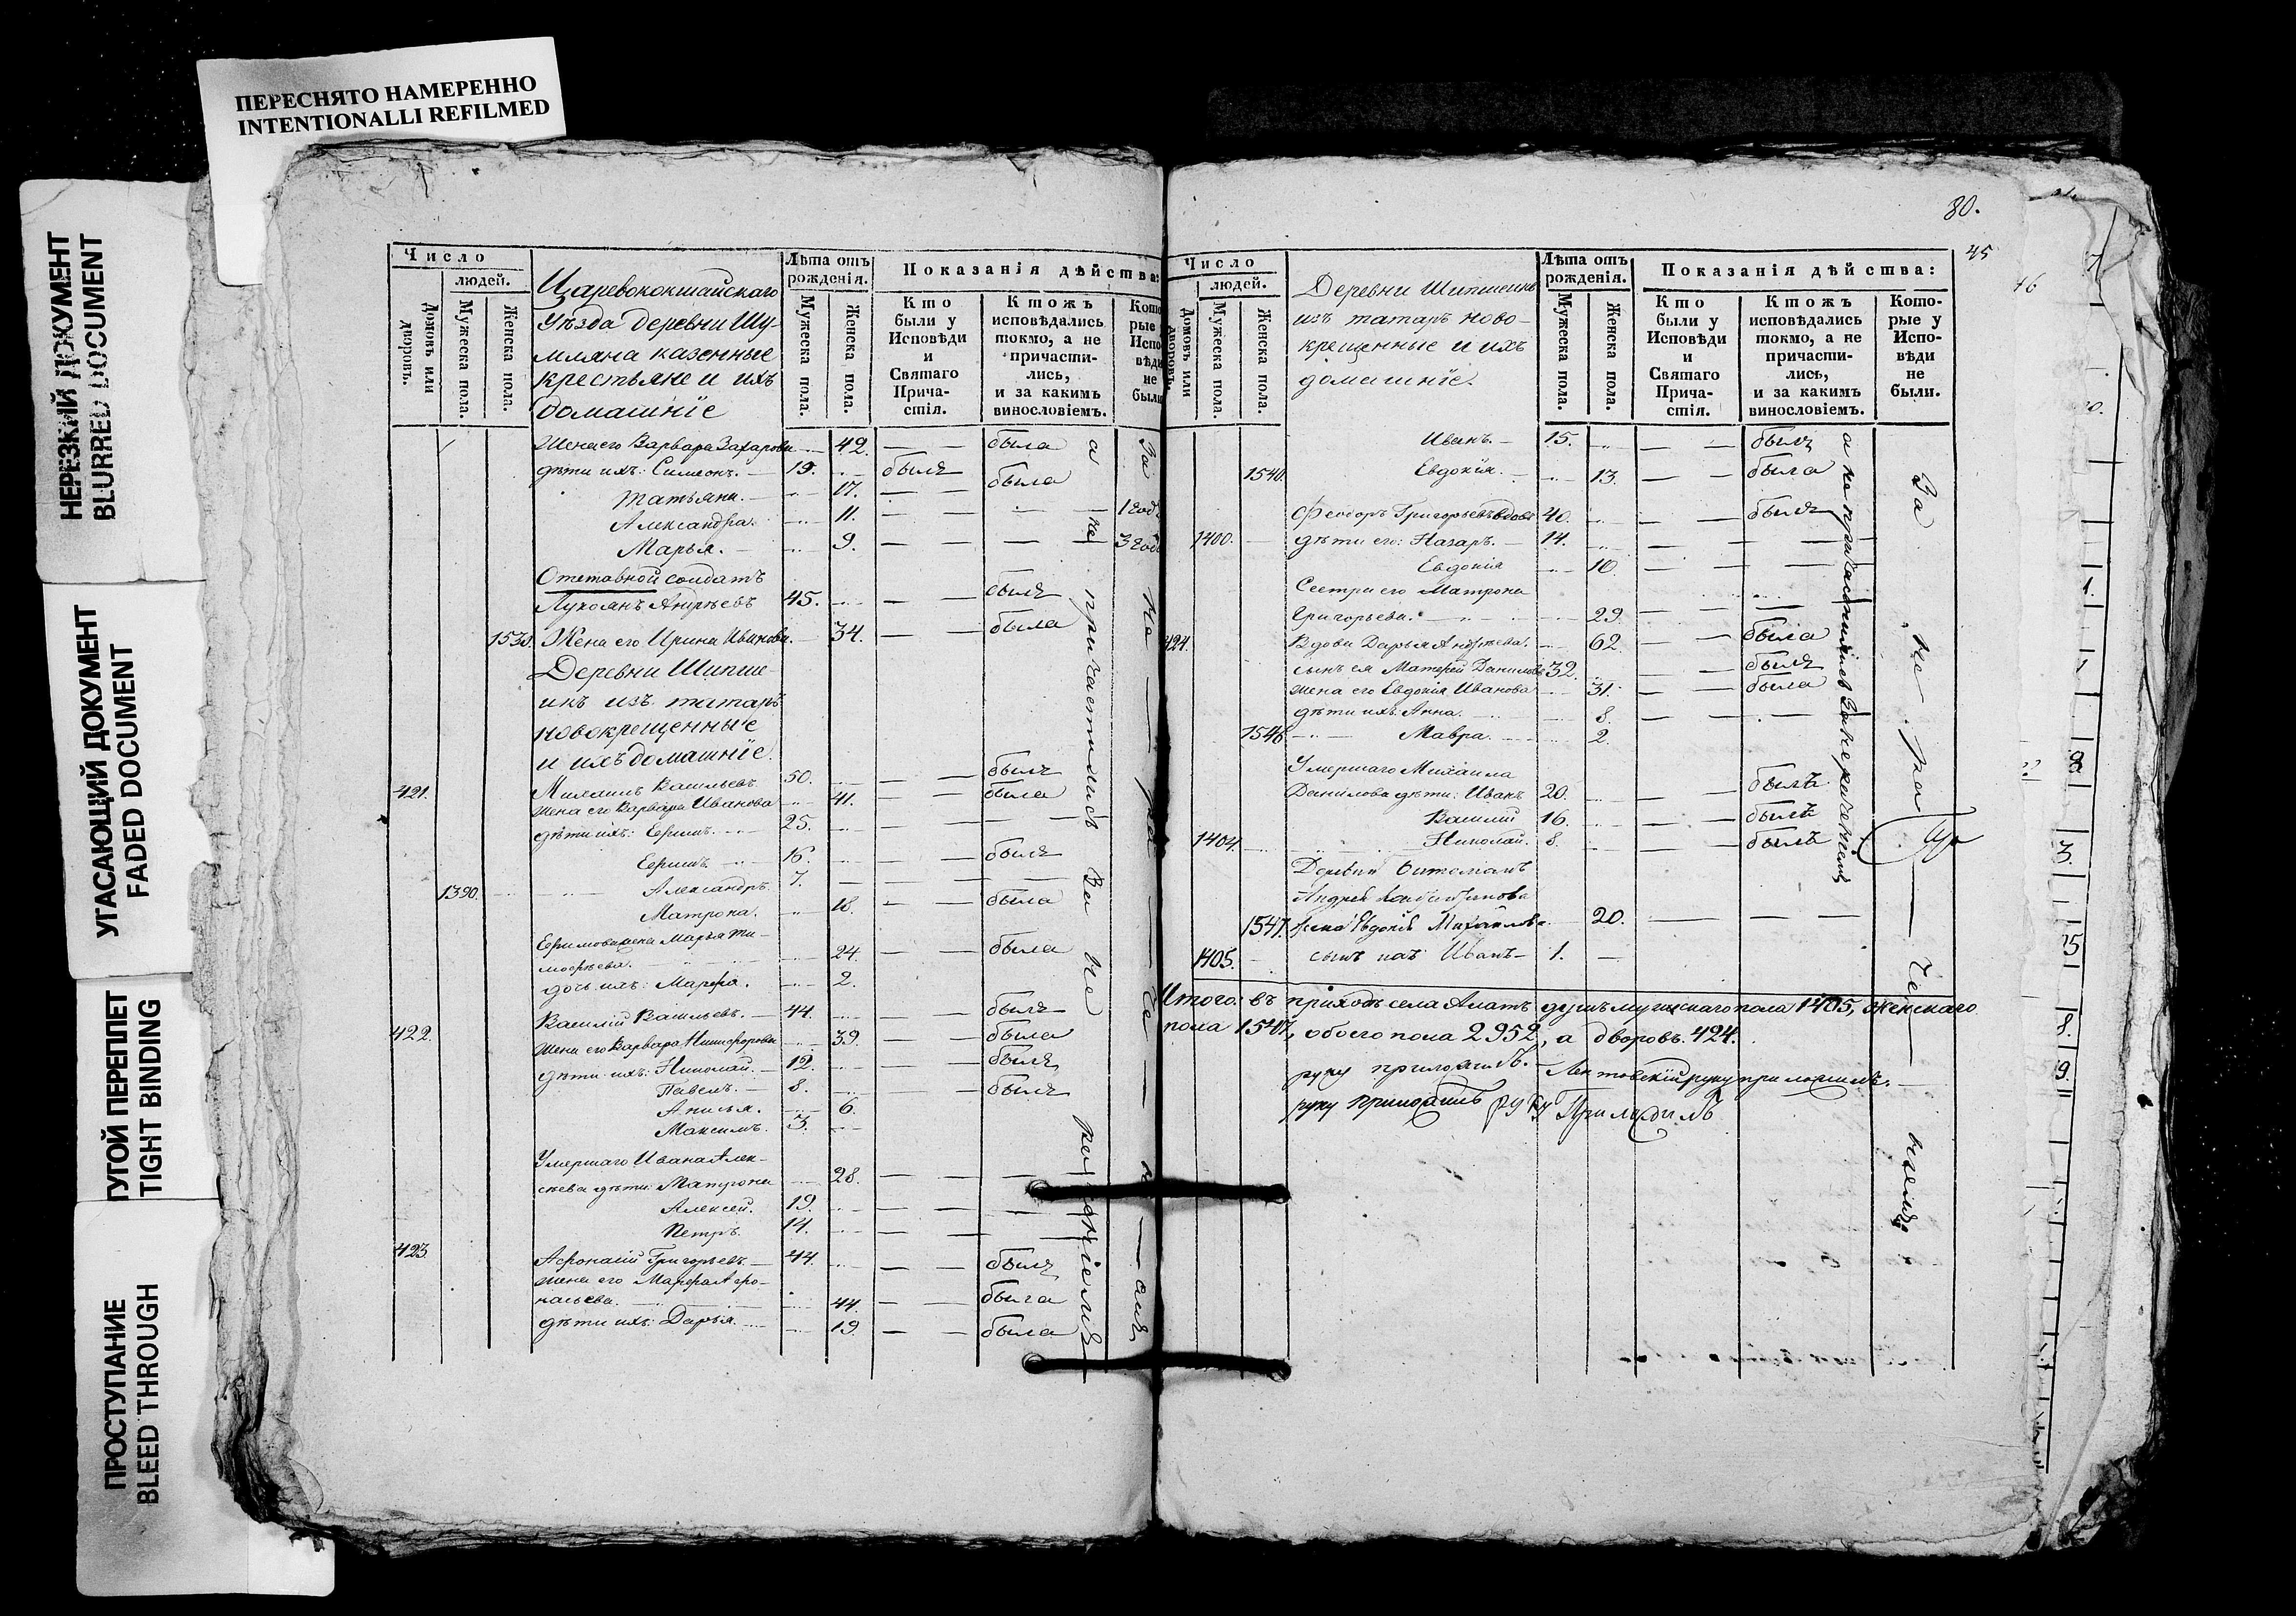 ПЕРЕСНЯТО НАМЕРЕННО
INTENTIONALLI REFILMED
НЕРЕЗКИЙ ДОКУМЕНТ
BLURRED DOCUMENT
УГАСАЮЩИЙ ДОКУМЕНТ
FADED DOCUMENT
ТУГОЙ ПЕРЕПЛЕТ
TIGHT BINDING
ПРОСТУПАНИЕ
BLEED THROUGH
Число
людей.
Домовъ или дворовъ.
Мужеска пола.
Женска пола.
Царевококшайскаго
Уѣзда деревни Шу-
мляна казенные
крестьяне и ихъ
домашніе
Лѣта отъ рожденія.
Мужеска пола.
Женска пола.
Показанія дѣйства:
Кто были у Исповѣди и Святаго Прича-стія.
Ктожъ исповѣдались токмо, а не причасти-лись, и за какимъ винословіемъ.
Кото-рые Испо-вѣди не были
Жена его Варвара Захарова 42. — — была
дѣти ихъ: Симеонъ. — 19. былъ
Татьяна. — 17. — была
Александра. 11. — — — 1 годъ
Марья. — 9. — — — 3 года
Отставной солдатъ
Лукоянъ Андреевъ 45. — — былъ
1539. Жена его Ирина Иванова. 34. — — была
Деревни Шипше-
икъ изъ татаръ
новокрещенные
и ихъ домашніе.
421. Михаилъ Васильевъ 50. — — былъ
жена его Варвара Иванова 41. — — была
дѣти ихъ: Ефимъ. 25. — — —
Ефимъ 16. — — былъ
1390. Александръ. 7. — — —
Матрона. 18. — — была
Ефимова жена Марья Ти-
мофѣева. 24. — — была
дочь ихъ: Марфа. 2.
422. Василій Васильевъ. — 44. былъ
жена его Варвара Никифорова 39. — — была
дѣти ихъ: Николай. — 12. — былъ
Павелъ. — 8. — былъ
6.
Максимъ. 3.
Умершаго Ивана Алек-
сѣева дѣти: Матрона 28. — — —
Алексей. 19. — — —
Петръ. 14. — — —
423. Афонасій Григорьевъ. — 44. былъ
жена его Марфа Афо-
насьева. 44. — — была
дѣти ихъ: Дарья. 19. — — была
а не причастились за не
За не
80.
45
Число
людей.
Домовъ или дворовъ.
Мужеска пола.
Женска пола.
Деревни Шипшеикъ
изъ татаръ ново-
крещенные и ихъ
домашніе.
Лѣта отъ рожденія.
Мужеска пола.
Женска пола.
Показанія дѣйства:
Кто были у Исповѣди и Святаго Прича-стія.
Ктожъ исповѣдались токмо, а не причасти-лись, и за какимъ винословіемъ.
Кото-рые у Испо-вѣди не были.
Иванъ. — 15. — — былъ
1540. Евдокія. — 13. — — была
Феодоръ Григорьевъ вдовъ 40. — — былъ
1400. дѣти его: Назаръ. — 14. — — —
Евдокія 10. — — —
Сестра его Матрона
Григорьева. 29. — — —
424. Вдова Дарья Андреева. 62. — — была
сынъ ея Матфей Даниловъ 32. — — былъ
жена его Евдокія Иванова 31. — — была
дѣти ихъ: Анна. 8. — — —
1546 Мавра. 2.
Умершаго Михаила
Данилова дѣти: Иванъ 20. — — былъ
Василій 16. былъ
1404. Николай. 8. — — былъ
Деревни
Андрея
1547. жена Евдокія Михайлова 20. — — —
1405. сынъ ихъ Иванъ — 1. —
Итого: въ приходѣ села Алатъ душъ мужскаго пола 1405, женскаго
пола 1547, обоего пола 2952, а дворовъ. 424.
руку приложилъ. — руку приложилъ.
руку приложилъ руку Приложилъ
а не причастились за
За не